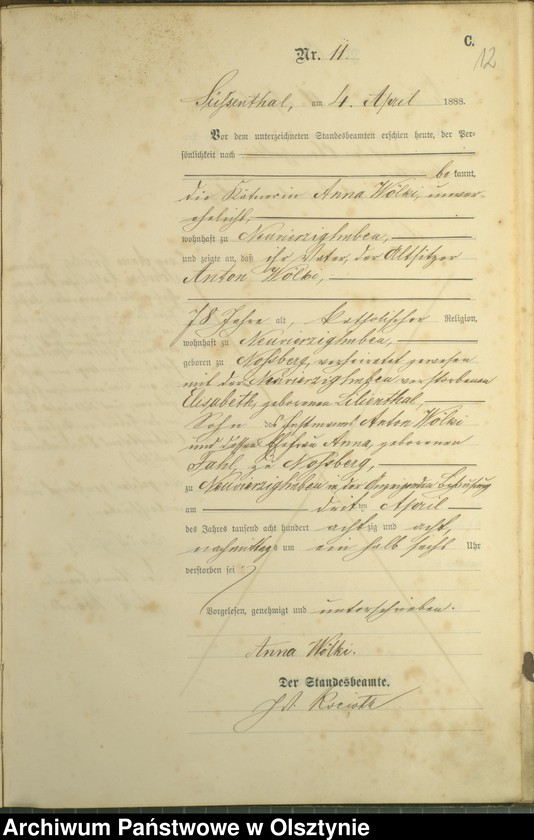 C.
12
Nr. 11.
Süssenthal, am 4. April 1888.
Vor dem unterzeichneten Standesbeamten erschien heute, der Per-
sönlichkeit nach
be kannt,
die Kätnerin Anna Wölki, unver-
ehelicht,
wohnhaft zu Neuvierzighuben,
und zeigte an, daß ihr Vater, der Altsitzer
Anton Wölki,
78 Jahre alt, katholischer Religion,
wohnhaft zu Neuvierzighuben,
geboren zu Noßberg, verheiratet gewesen
mit der Neuvierzighuben verstorbenen
Elisabeth, geborenen Lilienthal,
Sohn des Instmanns Anton Wölki
und dessen Ehefrau Anna, geborenen
Fahl, zu Noßberg,
zu Neuvierzighuben in der Anzeigenden Behausung
am dritten April
des Jahres tausend acht hundert acht zig und acht,
nachmittags um ein halb sechs Uhr
verstorben sei
Vorgelesen, genehmigt und unterschrieben.
Anna Wölki.
Der Standesbeamte.
Archiwum Państwowe w Olsztynie